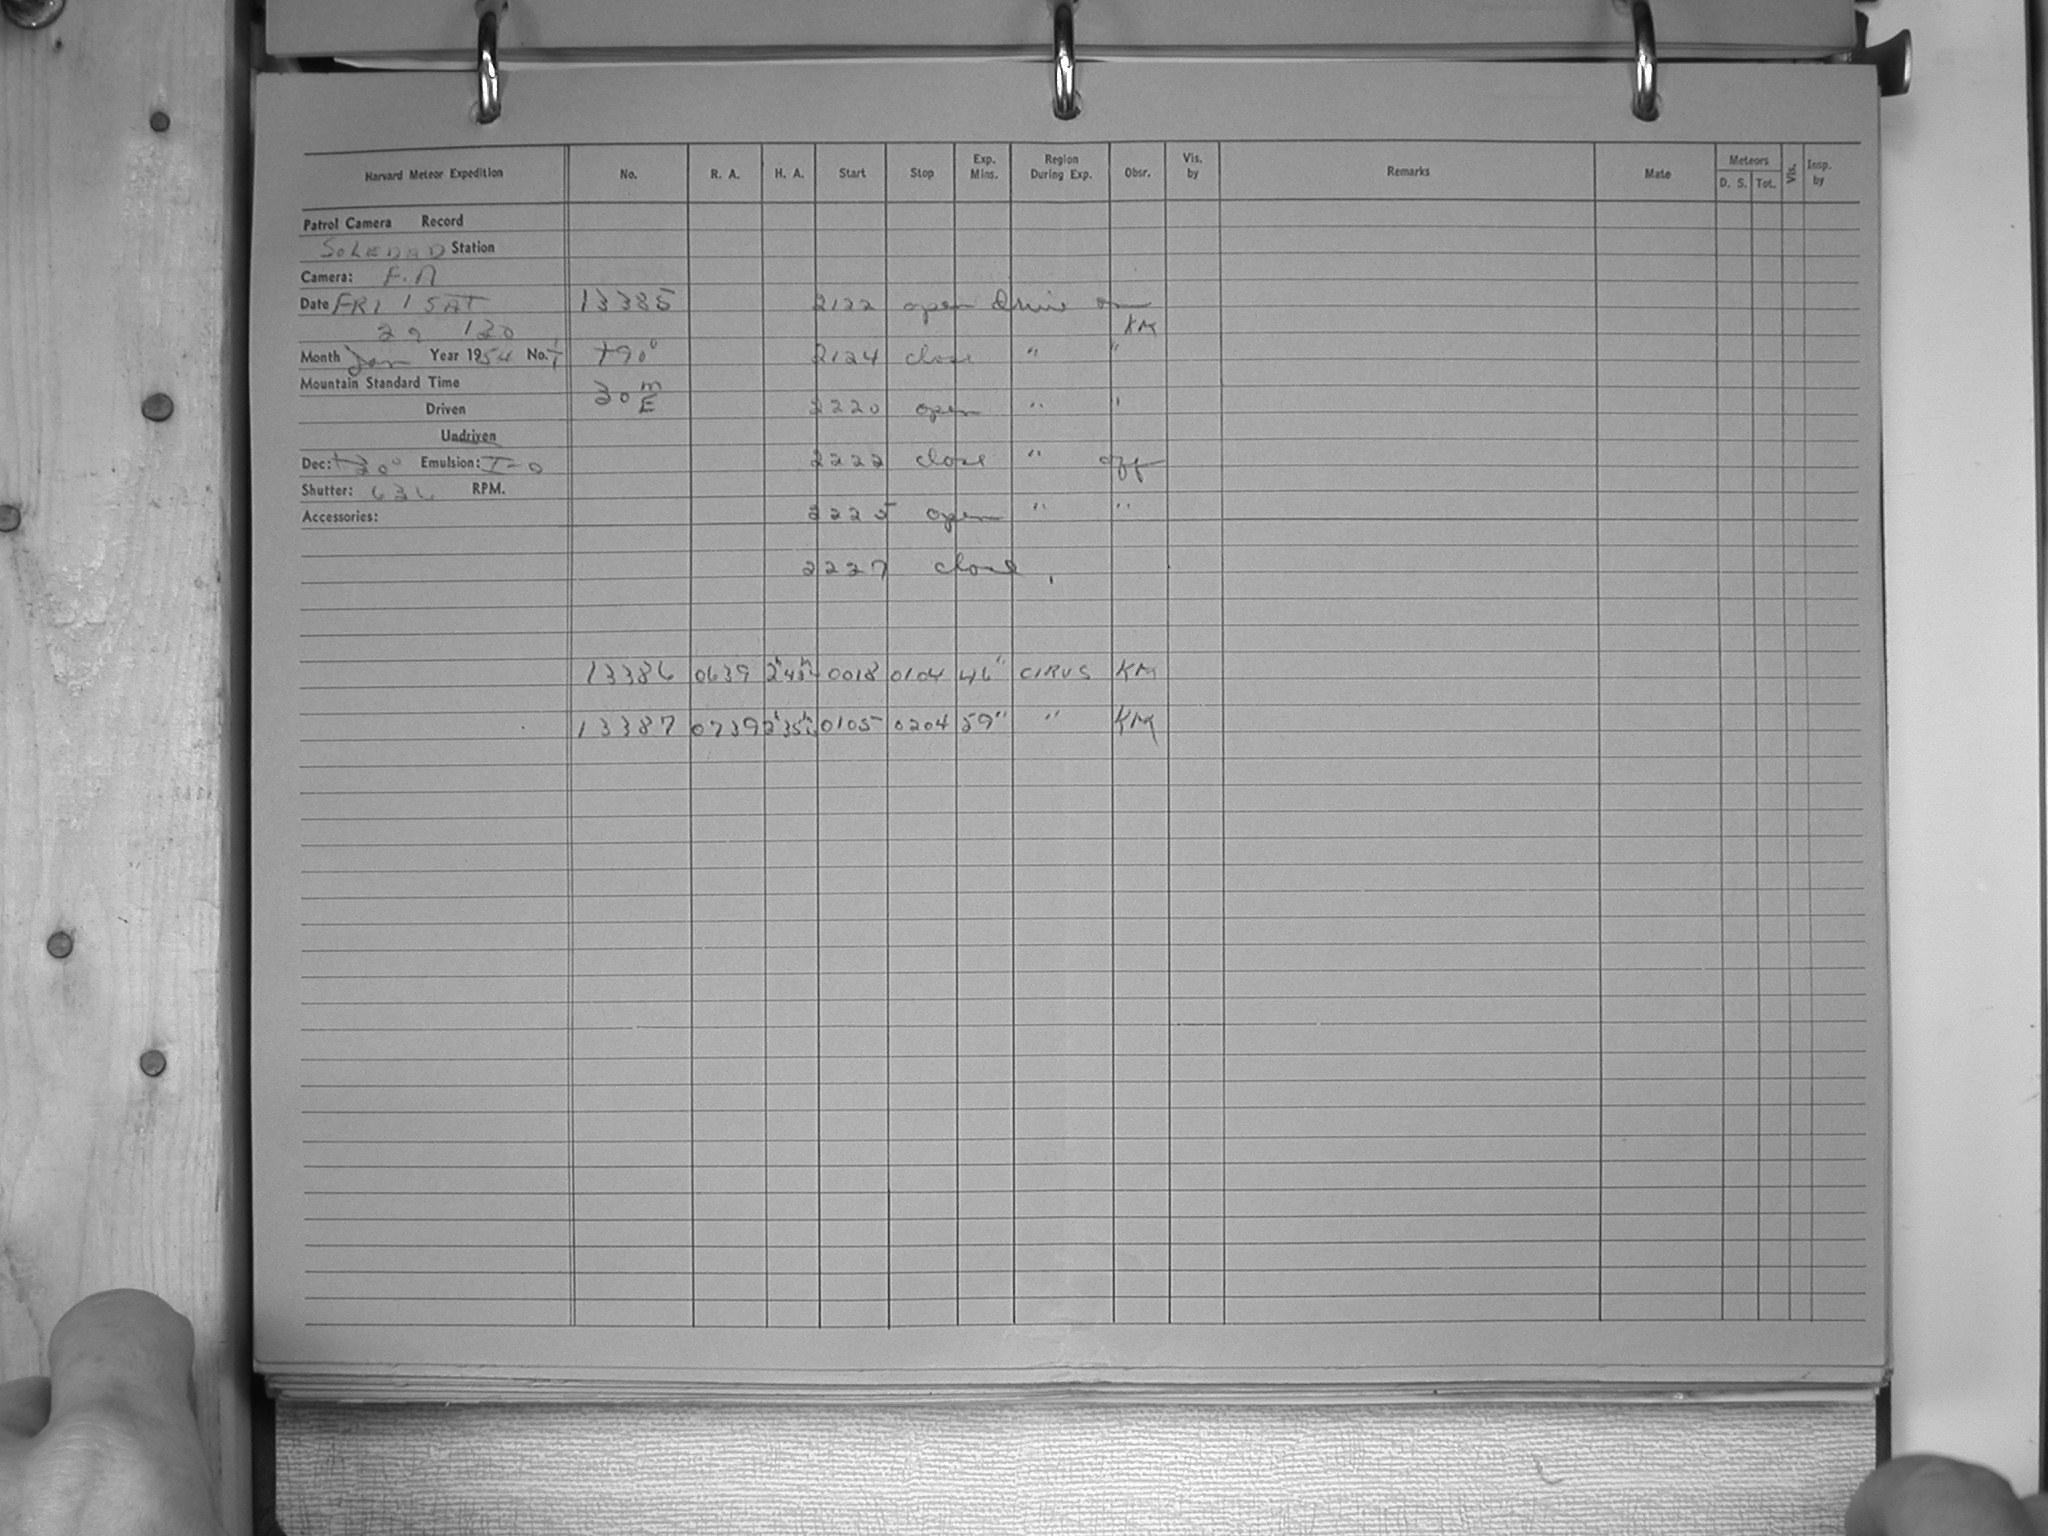 Harvard Meteor Expedition No. R. A. H. A. Start Stop Exp. Mins. Region During Exp. Obsr. Vis. by Remarks Mate Meteors D. S. Tot. Vis. Insp. by
Patrol Camera Record
SOLEDAD Station
Camera:
Date FRI / SAT 13385 2122 open Drive on
29 / 30 KM
Month Jan Year 1954 No. +90° 2124 close " "
Mountain Standard Time 30 m E
Driven 2220 open " "
Undriven
Dec: +20° Emulsion: I-0 2222 close " off
Shutter: 636 RPM.
Accessories: 2225 open " "
2227 close
13386 0639 0018 0104 46" CIRUS KM
13387 0739 0105 0204 59" " KM